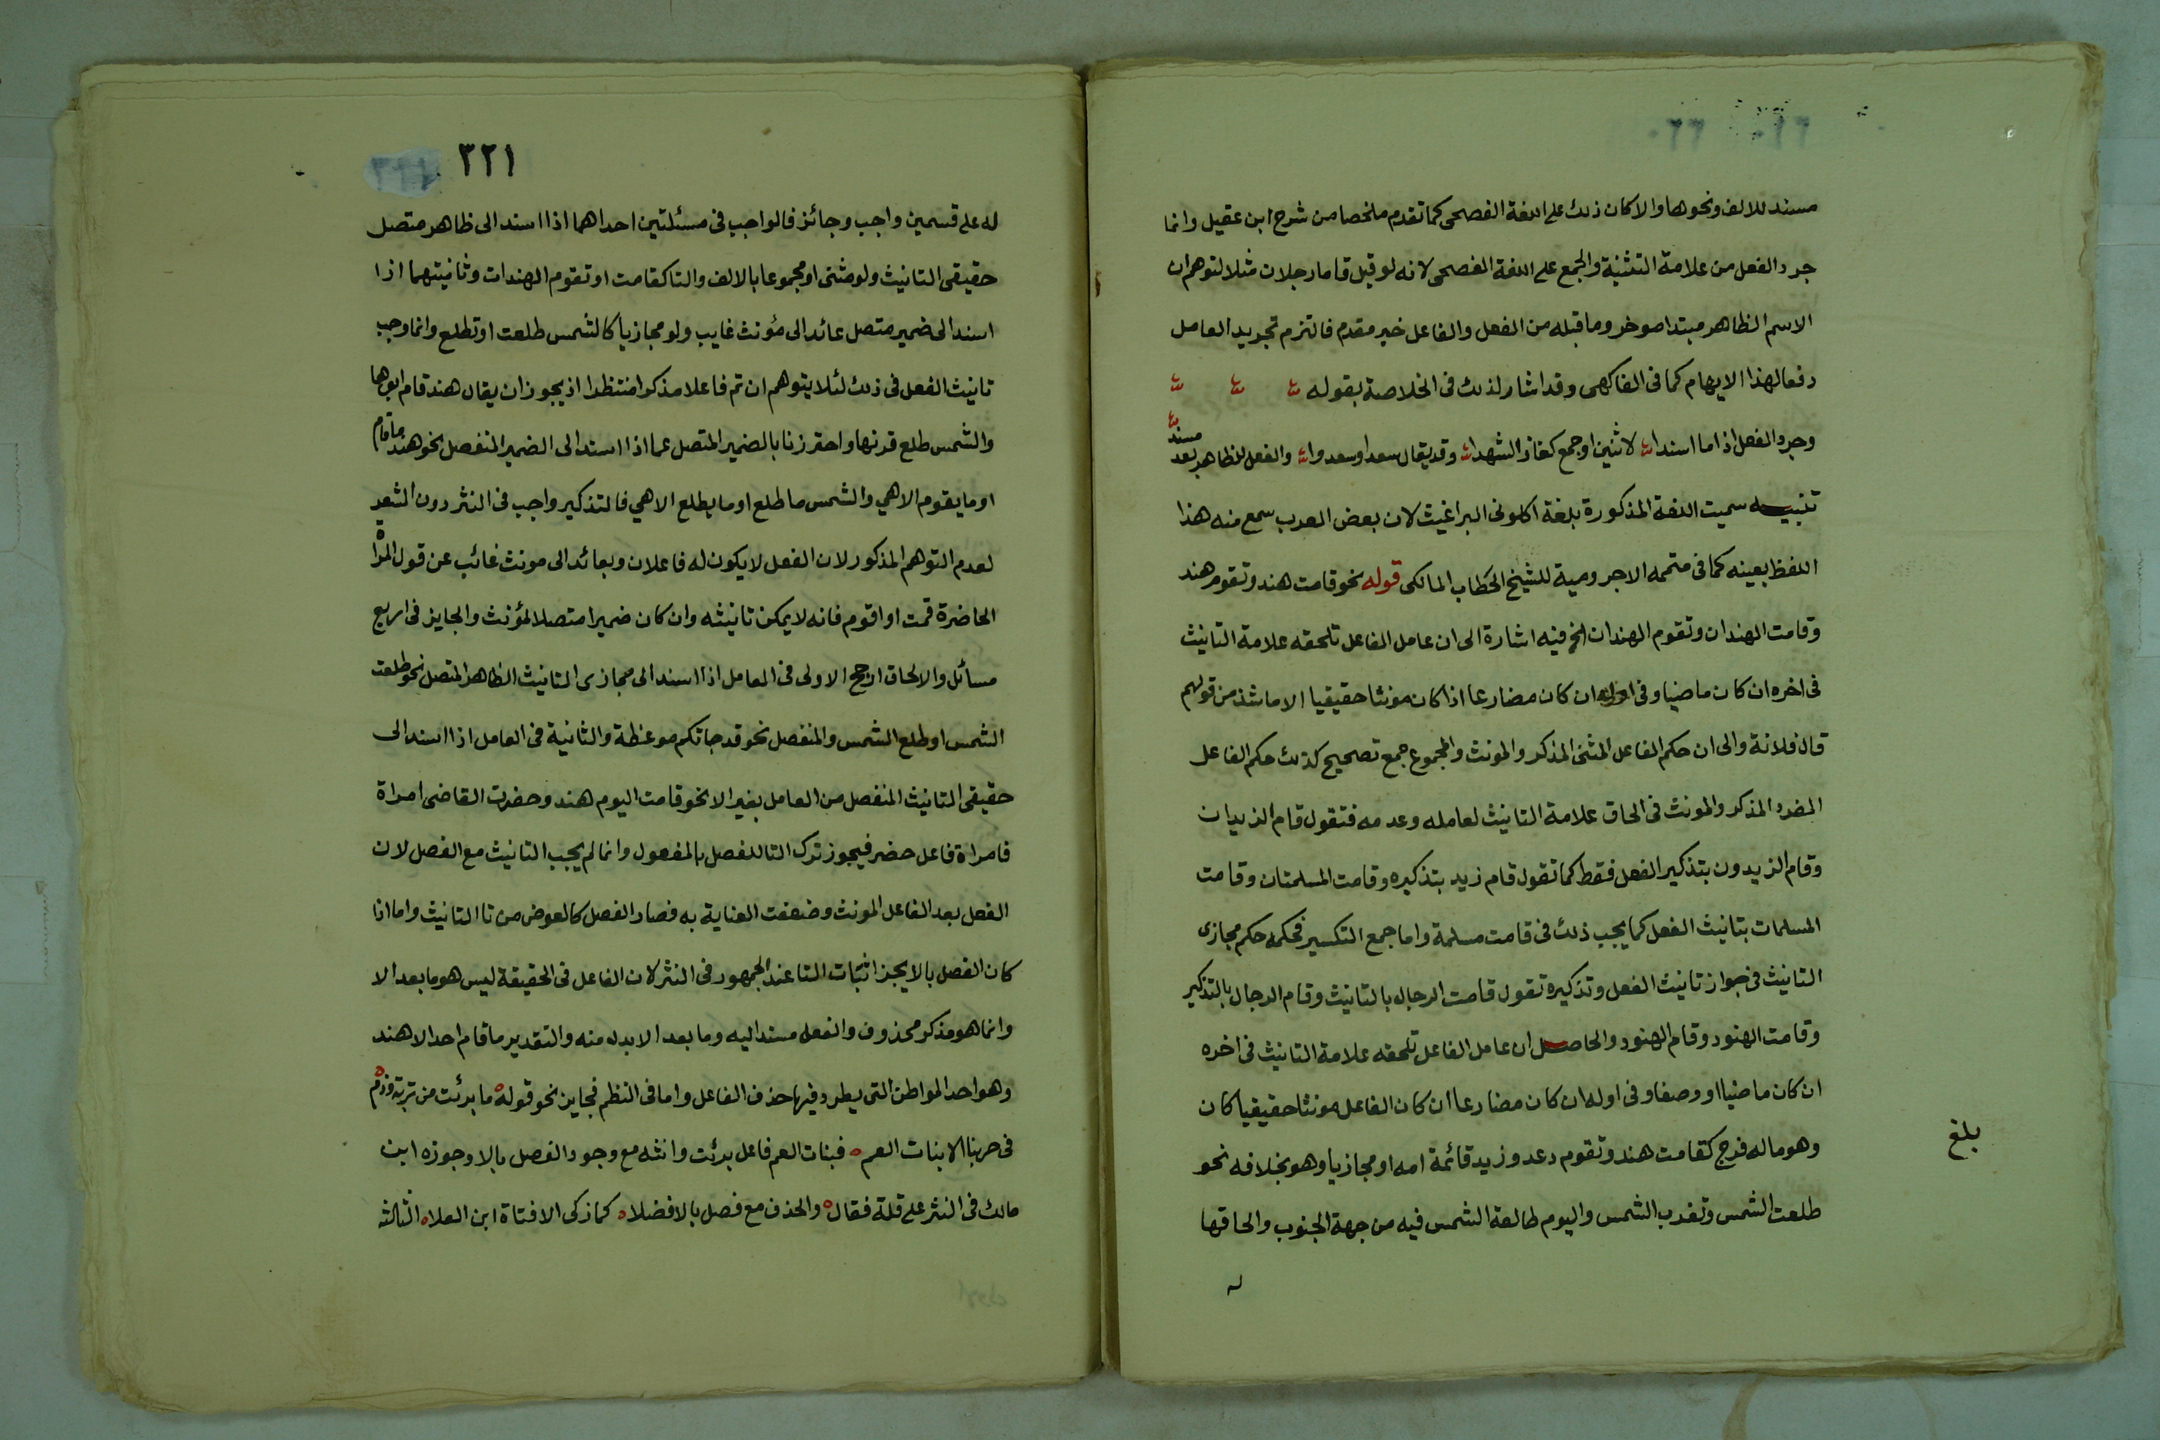 مسند للالف ونحوها والا كان ذلك على اللغة الفصحى كما تقدم ملخصا من شرح ابن عقيل وانما
جرد الفعل من علامة التثنية والجمع على اللغة الفصحى لانه لو قيل قاما رجلان مثلا لتوهم ان
الاسم الظاهر مبتدا موخر وما قبله من الفعل والفاعل خبر مقدم فالتزم تجريد العامل
دفعا لهذا الايهام كما فى الفاكهى وقد اشار لذلك فى الخلاصة بقوله
وجرد الفعل اذا ما اسندا لاثنين او جمع كفاز الشهدا وقد يقال سعدا وسعدوا والفعل للظاهر بعد مسند
تنبيه سميت اللغة المذكورة بلغة اكلونى البراغيث لان بعض العرب سمع منه هذا
اللفظ بعينه كما فى متممه الاجرومية للشيخ الحطاب المالكى قوله نحو قامت هند وتقوم هند
وقامت الهندان وتقوم الهندان الخ فيه اشارة الى ان عامل الفاعل تلحقه علامة التانيث
فى اخره ان كان ماضيا وفى اوله ان كان مضارعا اذا كان مونثا حقيقيا الا ما شذ من قولهم
قال فلانة والى ان حكم الفاعل المثنى المذكر والمونث والمجموع جمع تصحيح كذلك حكم الفاعل
المفرد المذكر والمونث فى الحاق علامة التانيث لعامله وعدمه فتقول قام الزيدان
وقام الزيدون بتذكير الفعل فقط كما تقول قام زيد بتذكيره وقامت المسلمتان وقامت
المسلمات بتانيث الفعل كما يجب ذلك فى قامت مسلمة واما جمع التكسير فحكمه حكم مجازى
التانيث فى جواز تانيث الفعل وتذكيره تقول قامت الرجال بالتانيث وقام الرجال بالتذكير
وقامت الهنود وقام الهنود والحاصل ان عامل الفاعل تلحقه علامة التانيث فى اخره
ان كان ماضيا او وصفا وفى اوله ان كان مضارعا ان كان الفاعل مونثا حقيقيا كان
وهو ما له فرج كقامت هند وتقوم دعد وزيد قائمة امه او مجازيا وهو بخلافه نحو
طلعت الشمس وتغرب الشمس واليوم طالعة الشمس فيه من جهة الجنوب والحاقها
له
بلغ
٣٢١
له على قسمين واجب وجائز فالواجب فى مسئلتين احداهما اذا اسند الى ظاهر متصل
حقيقى التانيث ولو مثنى او مجموعا بالالف والتا كقامت او تقوم الهندات وثانيتهما اذا
اسند الى ضمير متصل عائد الى مؤنث غايب ولو مجازيا كالشمس طلعت او تطلع وانما وجب
تانيث الفعل فى ذلك لئلا يتوهم ان ثم فاعلا مذكرا منتظرا اذ يجوز ان يقال هند قام ابوها
والشمس طلع قرنها واحترزنا بالضمير المتصل عما اذا اسند الى الضمير المنفصل نحو هند ما قام
او ما يقوم الا هي والشمس ما طلع او ما يطلع الا هي فالتذكير واجب فى النثر دون الشعر
لعدم التوهم المذكور لان الفعل لا يكون له فاعلان وبعائد الى مونث غائب عن قول المراة
الحاضرة قمت او اقوم فانه لا يمكن تانيثه وان كان ضميرا متصلا لمؤنث والجايز فى اربع
مسائل والالحاق ارجح الاولى فى العامل اذا اسند الى مجازى التانيث الظاهر المتصل نحو طلعت
الشمس او طلع الشمس والمنفصل نحو قد جاتكم موعظة والثانية فى العامل اذا اسند الى
حقيقى التانيث المنفصل من العامل بغير الا نحو قامت اليوم هند وحضرت القاضى امراة
فامراة فاعل حضر فيجوز ترك التا للفصل بالمفعول وانما لم يجب التانيث مع الفصل لان
الفعل بعد الفاعل المونث وضعفت العناية به فصار الفصل كالعوض من تا التانيث واما اذا
كان الفصل بالا يجز اثبات التا عند الجمهور فى النثر لان الفاعل فى الحقيقة ليس هو ما بعد الا
وانما هو مذكر محذوف والفعل مسند اليه وما بعد الا بدل منه والتقدير ما قام احد الا هند
وهو احد المواطن التى يطرد فيها حذف الفاعل واما فى النظم فجايز نحو قوله ما برئت من ريبة وذم
فى حربنا الا بنات العم فبنات العم فاعل برئت وانثه مع وجود الفصل بالا وجوزه ابن
مالك فى النثر على قلة فقال والحذف مع فصل بالا فضلا كما زكى الا فتاة ابن العلا الثالثه